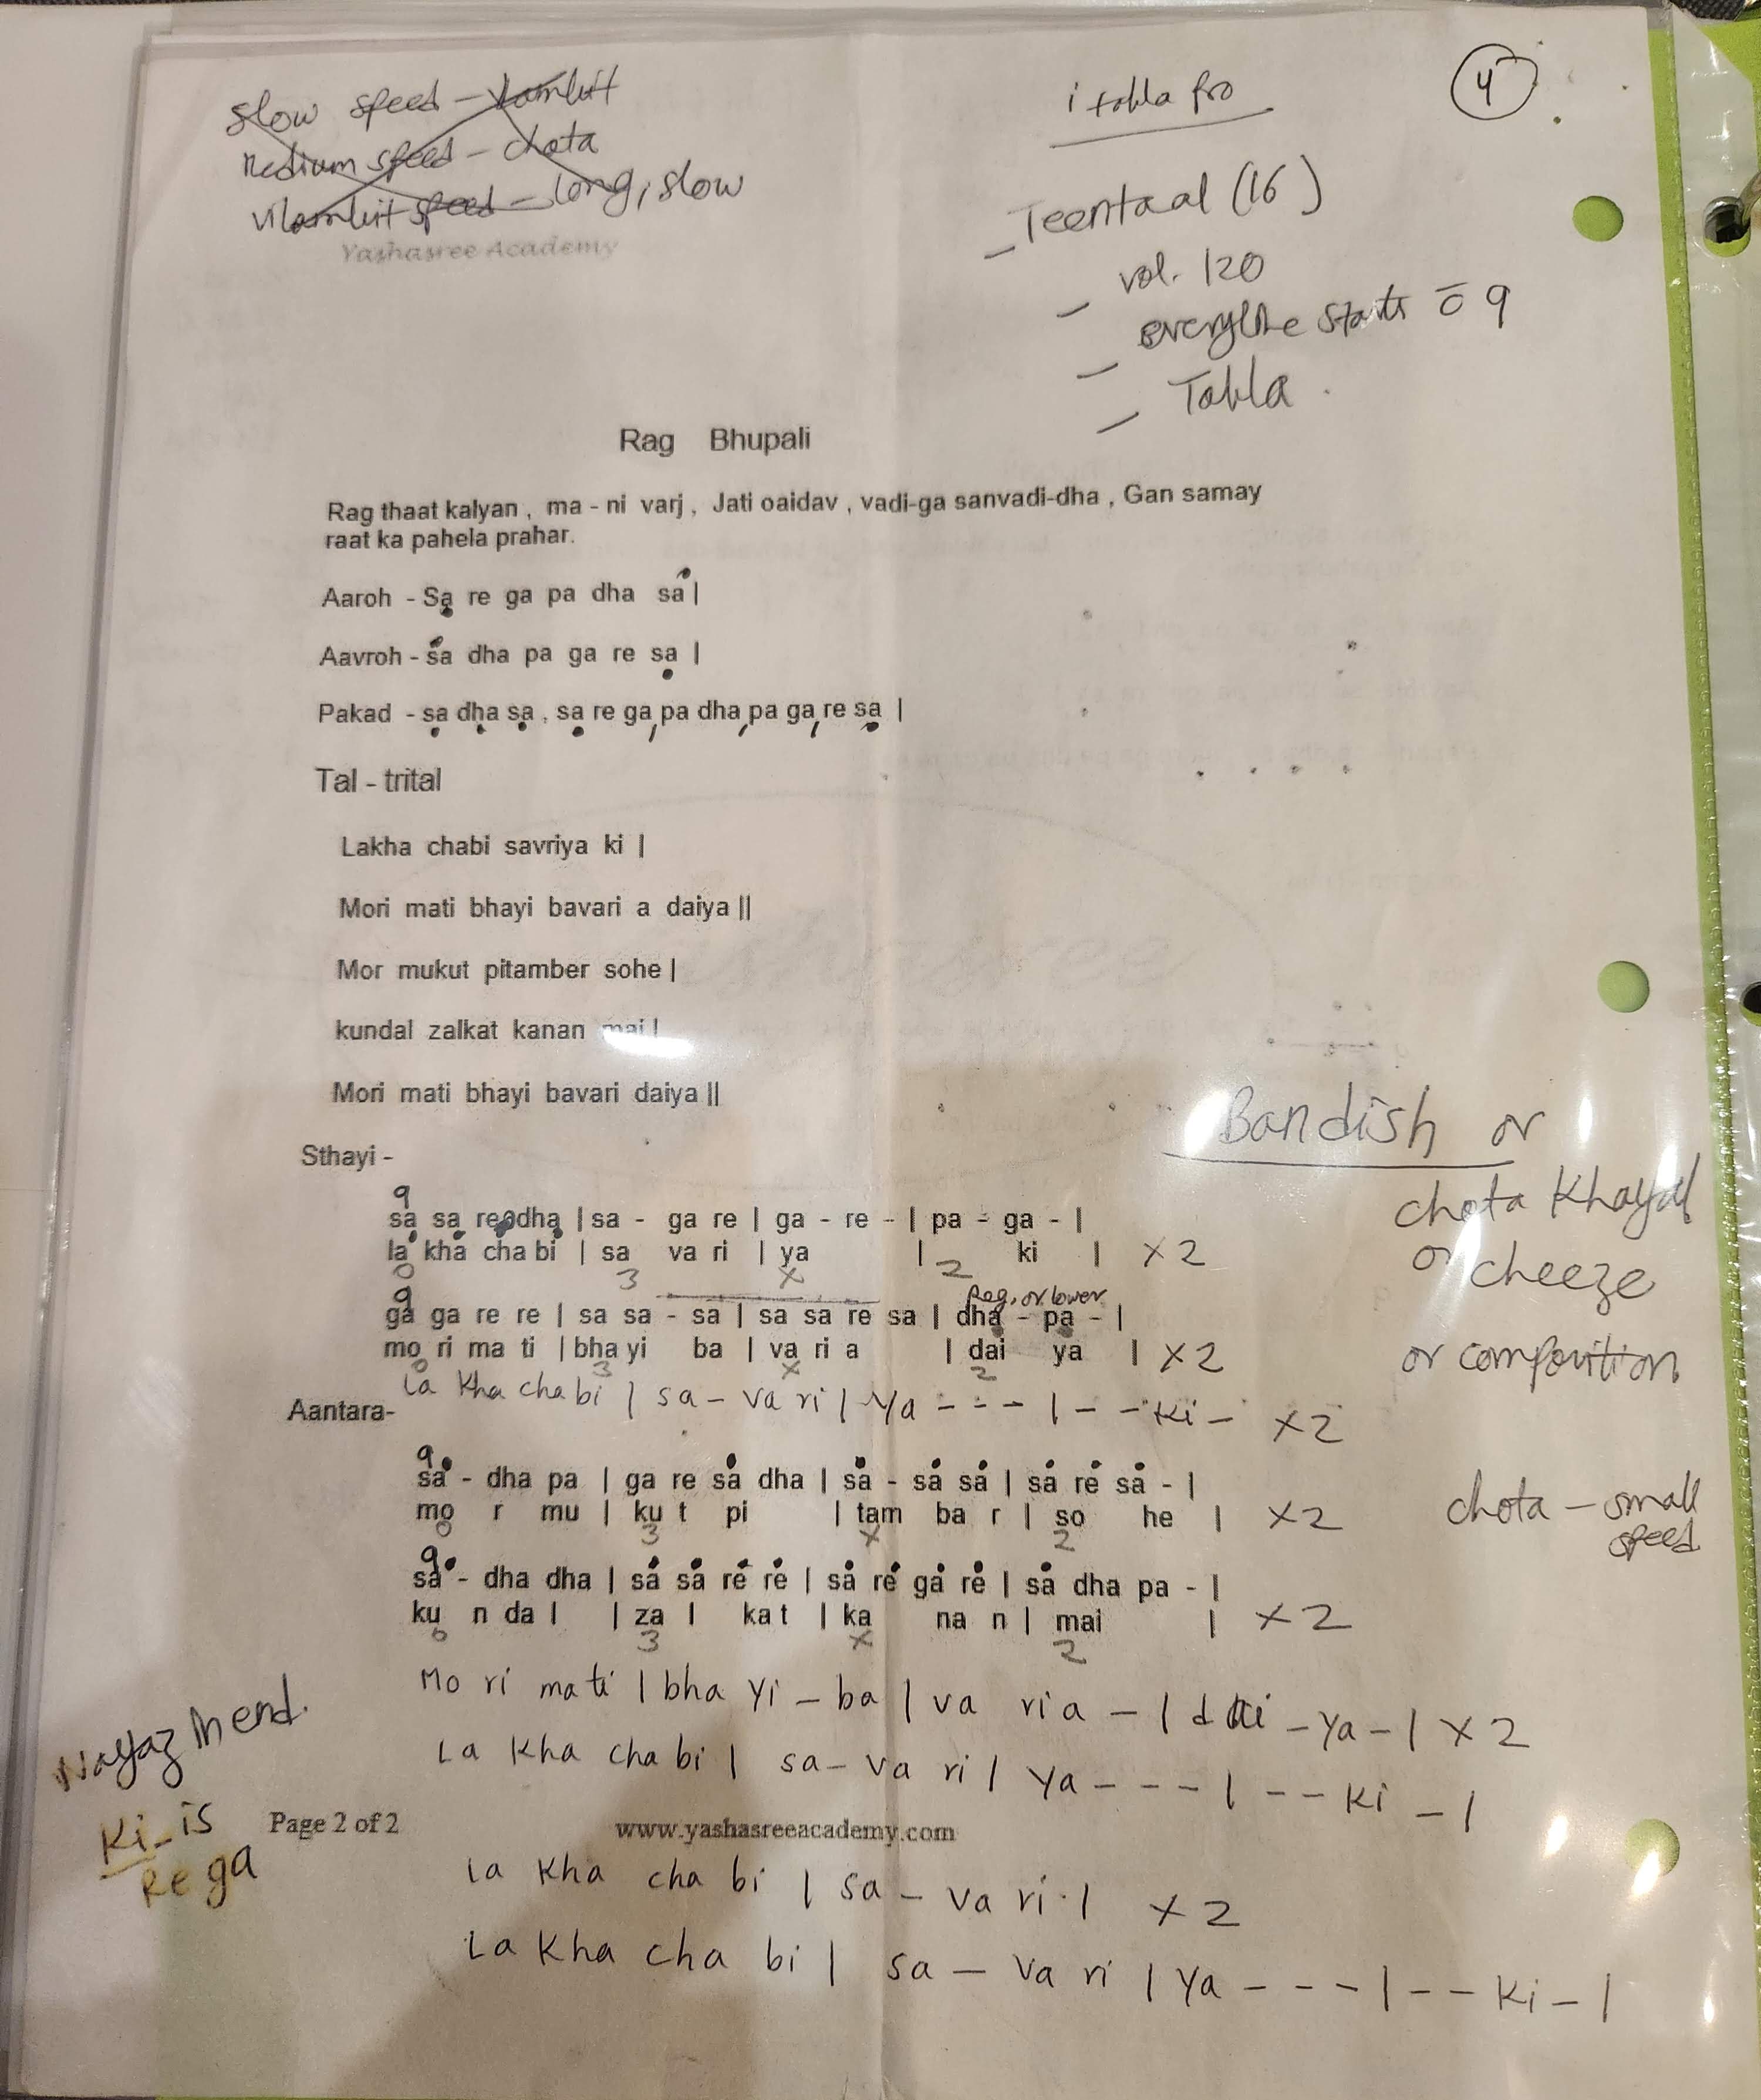 slow speed - Vlambit
Medium speed - chota
vilambit speed - long, slow
Yashasree Academy
i tabla pro
4
- Teentaal (16)
- vol. 120
- everyline starts c̄ 9
- Tabla.
Rag Bhupali
Rag thaat kalyan , ma - ni varj , Jati oaidav , vadi-ga sanvadi-dha , Gan samay
raat ka pahela prahar.
Aaroh - Sạ re ga pa dha sȧ |
Aavroh - sȧ dha pa ga re sạ |
Pakad - sạ dhạ sạ , sạ re ga, pa dha, pa ga, re sạ |
Tal - trital
Lakha chabi savriya ki |
Mori mati bhayi bavari a daiya ||
Mor mukut pitamber sohe |
kundal zalkat kanan mai |
Mori mati bhayi bavari daiya ||
Bandish or
chota Khayal
or cheeze
or composition
Sthayi -
9
sa sa re dha | sa - ga re | ga - re - | pa - ga - |
la kha cha bi | sa va ri | ya | ki | x2
0 3 x 2
9 Reg. or lower
ga ga re re | sa sa - sa | sa sa re sa | dha - pa - |
mo ri ma ti | bha yi ba | va ri a | dai ya | x2
0 3 x 2
la kha cha bi | sa - va ri | Ya - - - | - - Ki - x2
Aantara-
9
sȧ - dha pa | ga re sȧ dha | sȧ - sȧ sȧ | sȧ rė sȧ - |
mo r mu | ku t pi | tam ba r | so he | x2
0 3 x 2
chota - small
speed
9
sȧ - dha dha | sȧ sȧ rė rė | sȧ rė gȧ rė | sȧ dha pa - |
ku n da l | za l kat | ka na n | mai | x2
0 3 x 2
Mo ri ma ti | bha yi - ba | va ri a - | dai - ya - | x2
La kha cha bi | sa - va ri | Ya - - - | - - Ki - |
end.
Ki - is
Re ga
Page 2 of 2
www.yashasreeacademy.com
la kha cha bi | sa - va ri | x2
La kha cha bi | sa - va ri | Ya - - - | - - Ki - |